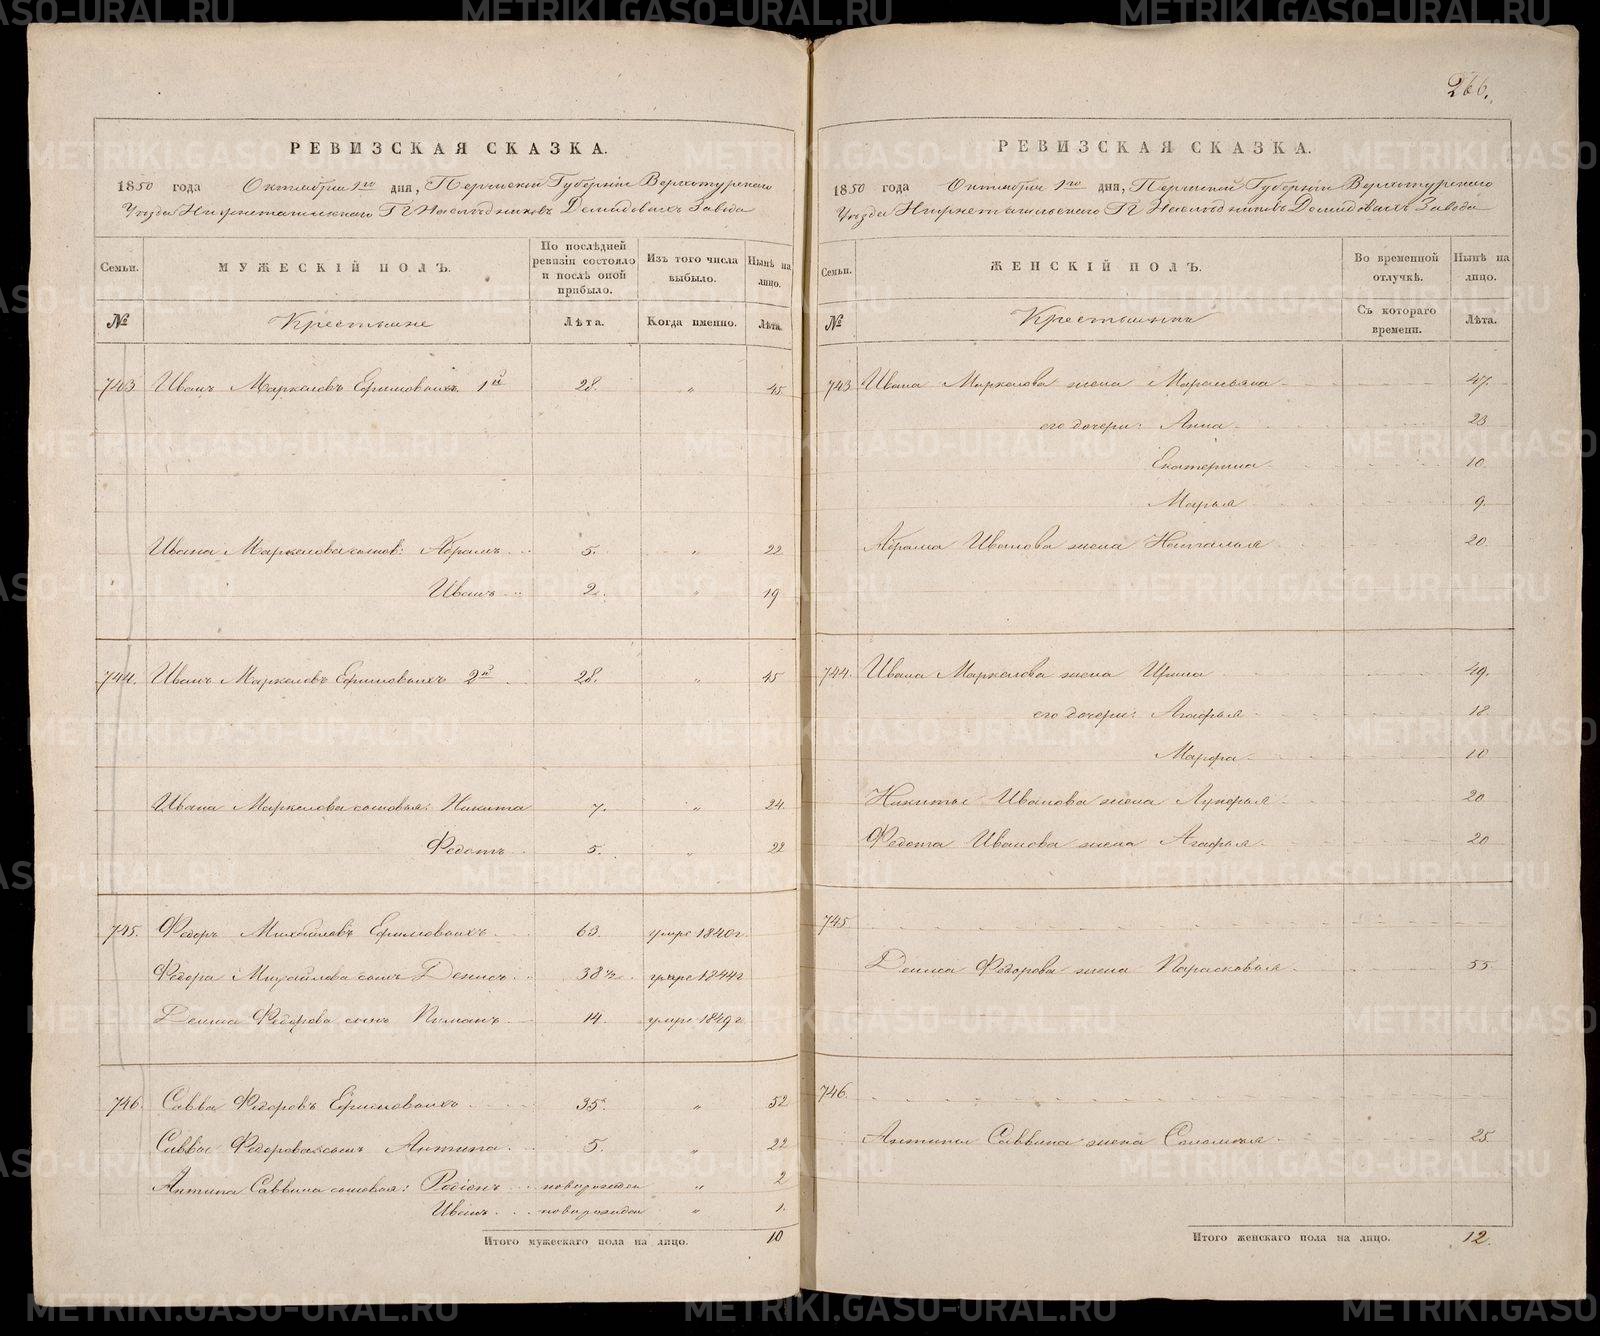 266.
РЕВИЗСКАЯ СКАЗКА.
1850 года Октября 1го дня, Пермской Губерніи Верхотурскаго
Уѣзда Нижнетагильскаго ГГ Наслѣдниковъ Демидовыхъ Завода
Семьи.
МУЖЕСКІЙ ПОЛЪ.
По послѣдней ревизіи состояло и послѣ оной прибыло.
Изъ того числа выбыло.
Нынѣ на лицо.
№
Крестьяне
Лѣта.
Когда именно.
Лѣта.
743 Иванъ Маркеловъ Ефимовыхъ 1й 28. " 45
Ивана Маркелова сынов: Абрамъ 5. " 22
Иванъ 2. " 19
744. Иванъ Маркеловъ Ефимовыхъ 2й 28. " 45
Ивана Маркелова сыновья: Никита 7. " 24
Федотъ 5. " 22
745. Федоръ Михайловъ Ефимовыхъ 63. умре 1840г
Федора Михайлова сынъ Денисъ 38½ умре 1844г
Дениса Федорова сынъ Пиманъ 14. умре 1849г
746. Савва Федоровъ Ефимовыхъ 35. " 52
Саввы Федорова сынъ Антипа 5. " 22
Антипа Саввина сыновья: Родіонъ новорожден " 2
Иванъ новорожден " 1.
Итого мужескаго пола на лицо. 10
РЕВИЗСКАЯ СКАЗКА.
1850 года Октября 1го дня, Пермской Губерніи Верхотурскаго
Уѣзда Нижнетагильскаго ГГ Наслѣдниковъ Демидовыхъ Завода
Семьи.
ЖЕНСКІЙ ПОЛЪ.
Во временной отлучкѣ.
Нынѣ на лицо.
№
Крестьянки
Съ котораго времени.
Лѣта.
743 Ивана Маркелова жена Маремьяна 47.
его дочери: Анна 23
Екатерина 10.
Марья 9.
Абрама Иванова жена Наталья 20
744. Ивана Маркелова жена Ирина 49.
его дочери: Агафья 18.
Марфа 10
Никиты Иванова жена Лукерья 20
Федота Иванова жена Агафья 20
745
Дениса Федорова жена Парасковья 55
746.
Антипы Саввина жена Соломія 25.
Итого женскаго пола на лицо. 12.
METRIKI.GASO-URAL.RU